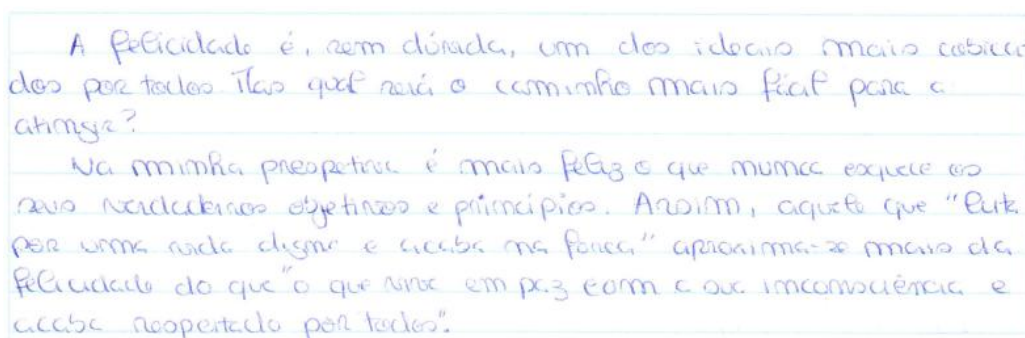 A felicidade é, sem dúvada, um dos ideais mais cobiça
dos por todos Mas qual será o caminho mais fácil para a
atingir?
Na minha preopetiva é mais feliz o que nunca esquece os
seus verdadeiros objetivos e princípios. Assim, aquele que "luta
por uma vida digna e acaba na forca" aproxima-se mais da
felicidade do que "o que vive em paz com a sua inconsciência e
acaba respeitado por todos".